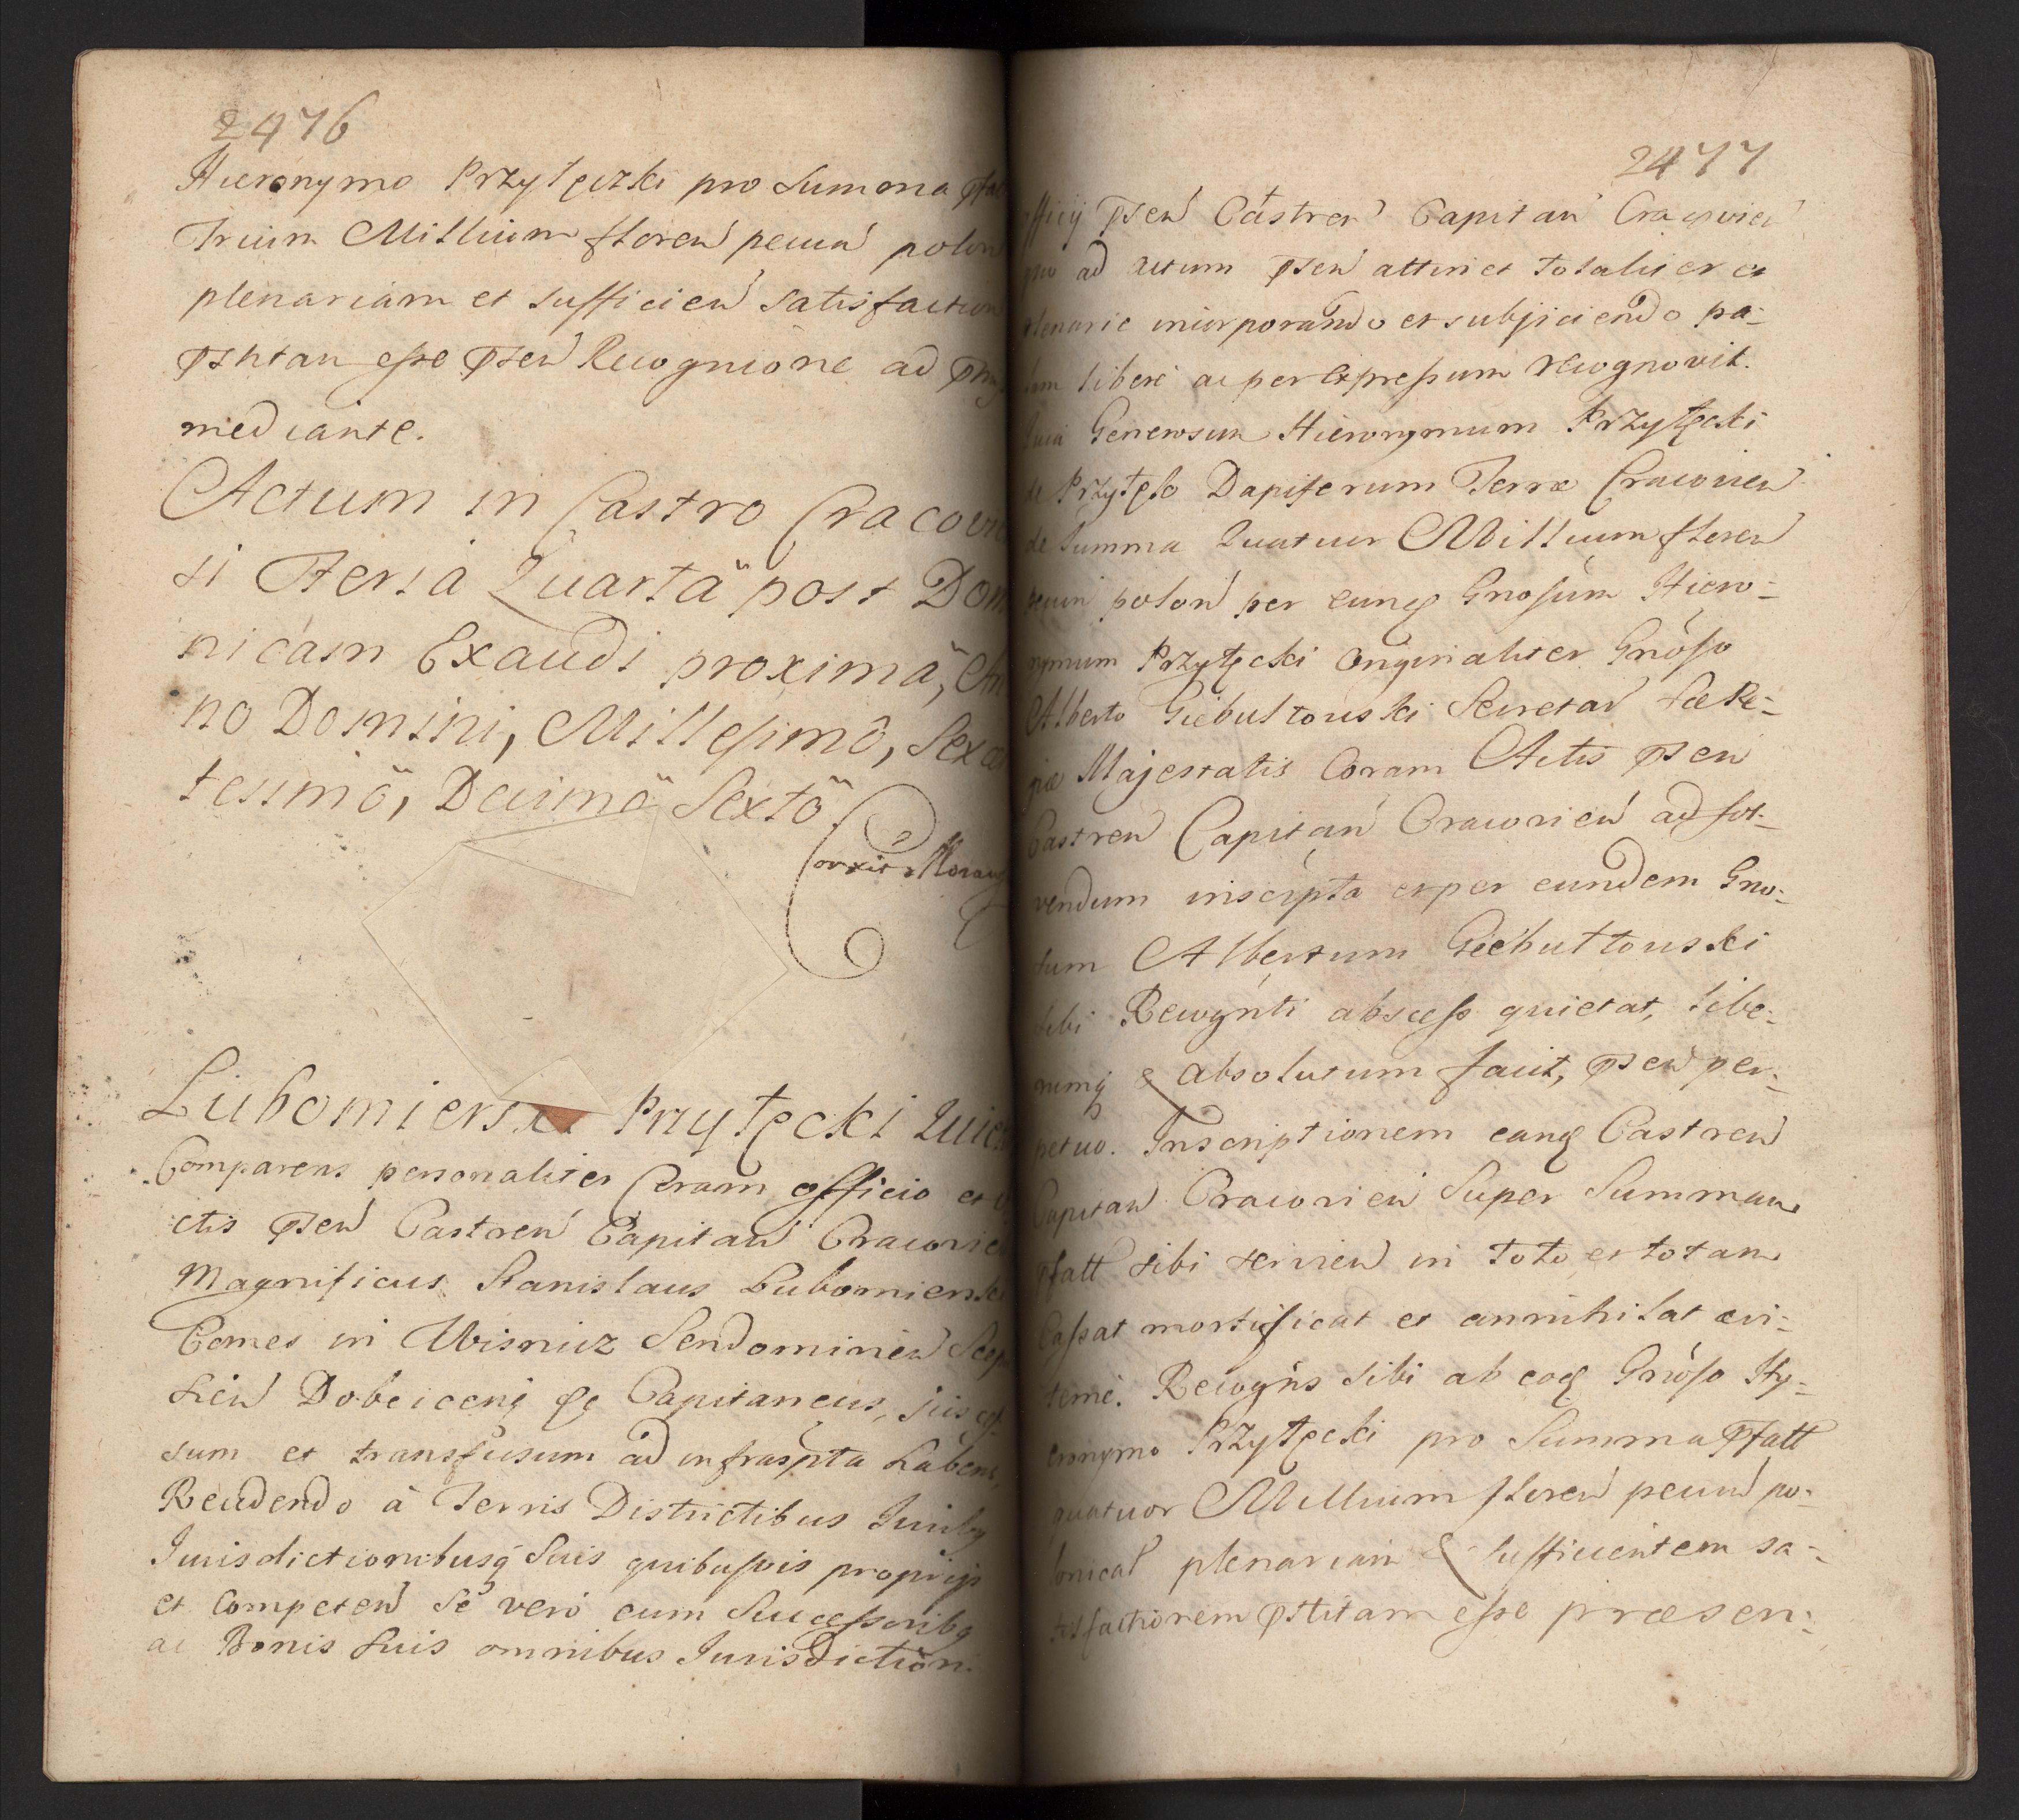 2476
Hieronymo Przyłęczki pro Summa
Trium Millium floren pecun polon
plenariam et sufficien satisfaction
pshtan esse psen Recognione ad
mediante.
Actum in Castro Cracovien
si Feria Quarta post Domi
nicam Exaudi proxima, An
no Domini, Millesimo, Sexcen
tesimo, Decimo Sexto.
Correxit
Lubomierski Przyłęcki Quie
Comparens personaliter Coram officio et A
ctis psen Castren Capitan Cracovien
Magnificus Stanislaus Lubomierski
Comes in Wisnicz Sendomirien Scep
sien Dobcicenq Capitaneus, jus
sum et transfusum ad infraspta habens,
Recedendo à Terris Districtibus Juribq
Jurisdictionibusq Suis quibusvis proprijs
et Competen Se vero cum Successoribq
ac Bonis suis omnibus Jurisdiction
2477
officij psen Castren Capitan Cracovien
quo ad actum psen attinet totaliter et
plenarie incorporando et subjiciendo pa-
lam libere ac per Expressum recognovit.
Quia Generosum Hieronymum Przyłęcki
de Przyłęk Dapiferum Terræ Cracovien
de Summa Quatuor Millium floren
pecun polon per eunq Gnosum Hiero-
nymum Przyłęcki Originaliter Gnoso
Alberto Giebultouski Secretar Sæ Re-
giæ Majestatis Coram Actis psen
Castren Capitan Cracovien ad sol-
vendum inscripta et per eundem Gno-
sum Albertum Giebultouski
sibi Recognti abscess quietat, libe-
rumq & absolutum facit, psen per-
petuo. Inscriptionem eanq Castren
Capitan Cracovien Super Summam
pfatt sibi servien in toto et totam
Cassat mortificat et annihilat
Recogns Sibi ab eoq Gnoso Hy-
eronymo Przyłęcki pro Summa pfatt
quatuor Millium floren pecun po-
lonical plenariam & sufficientem sa-
tisfactionem pstitam esse præsen-